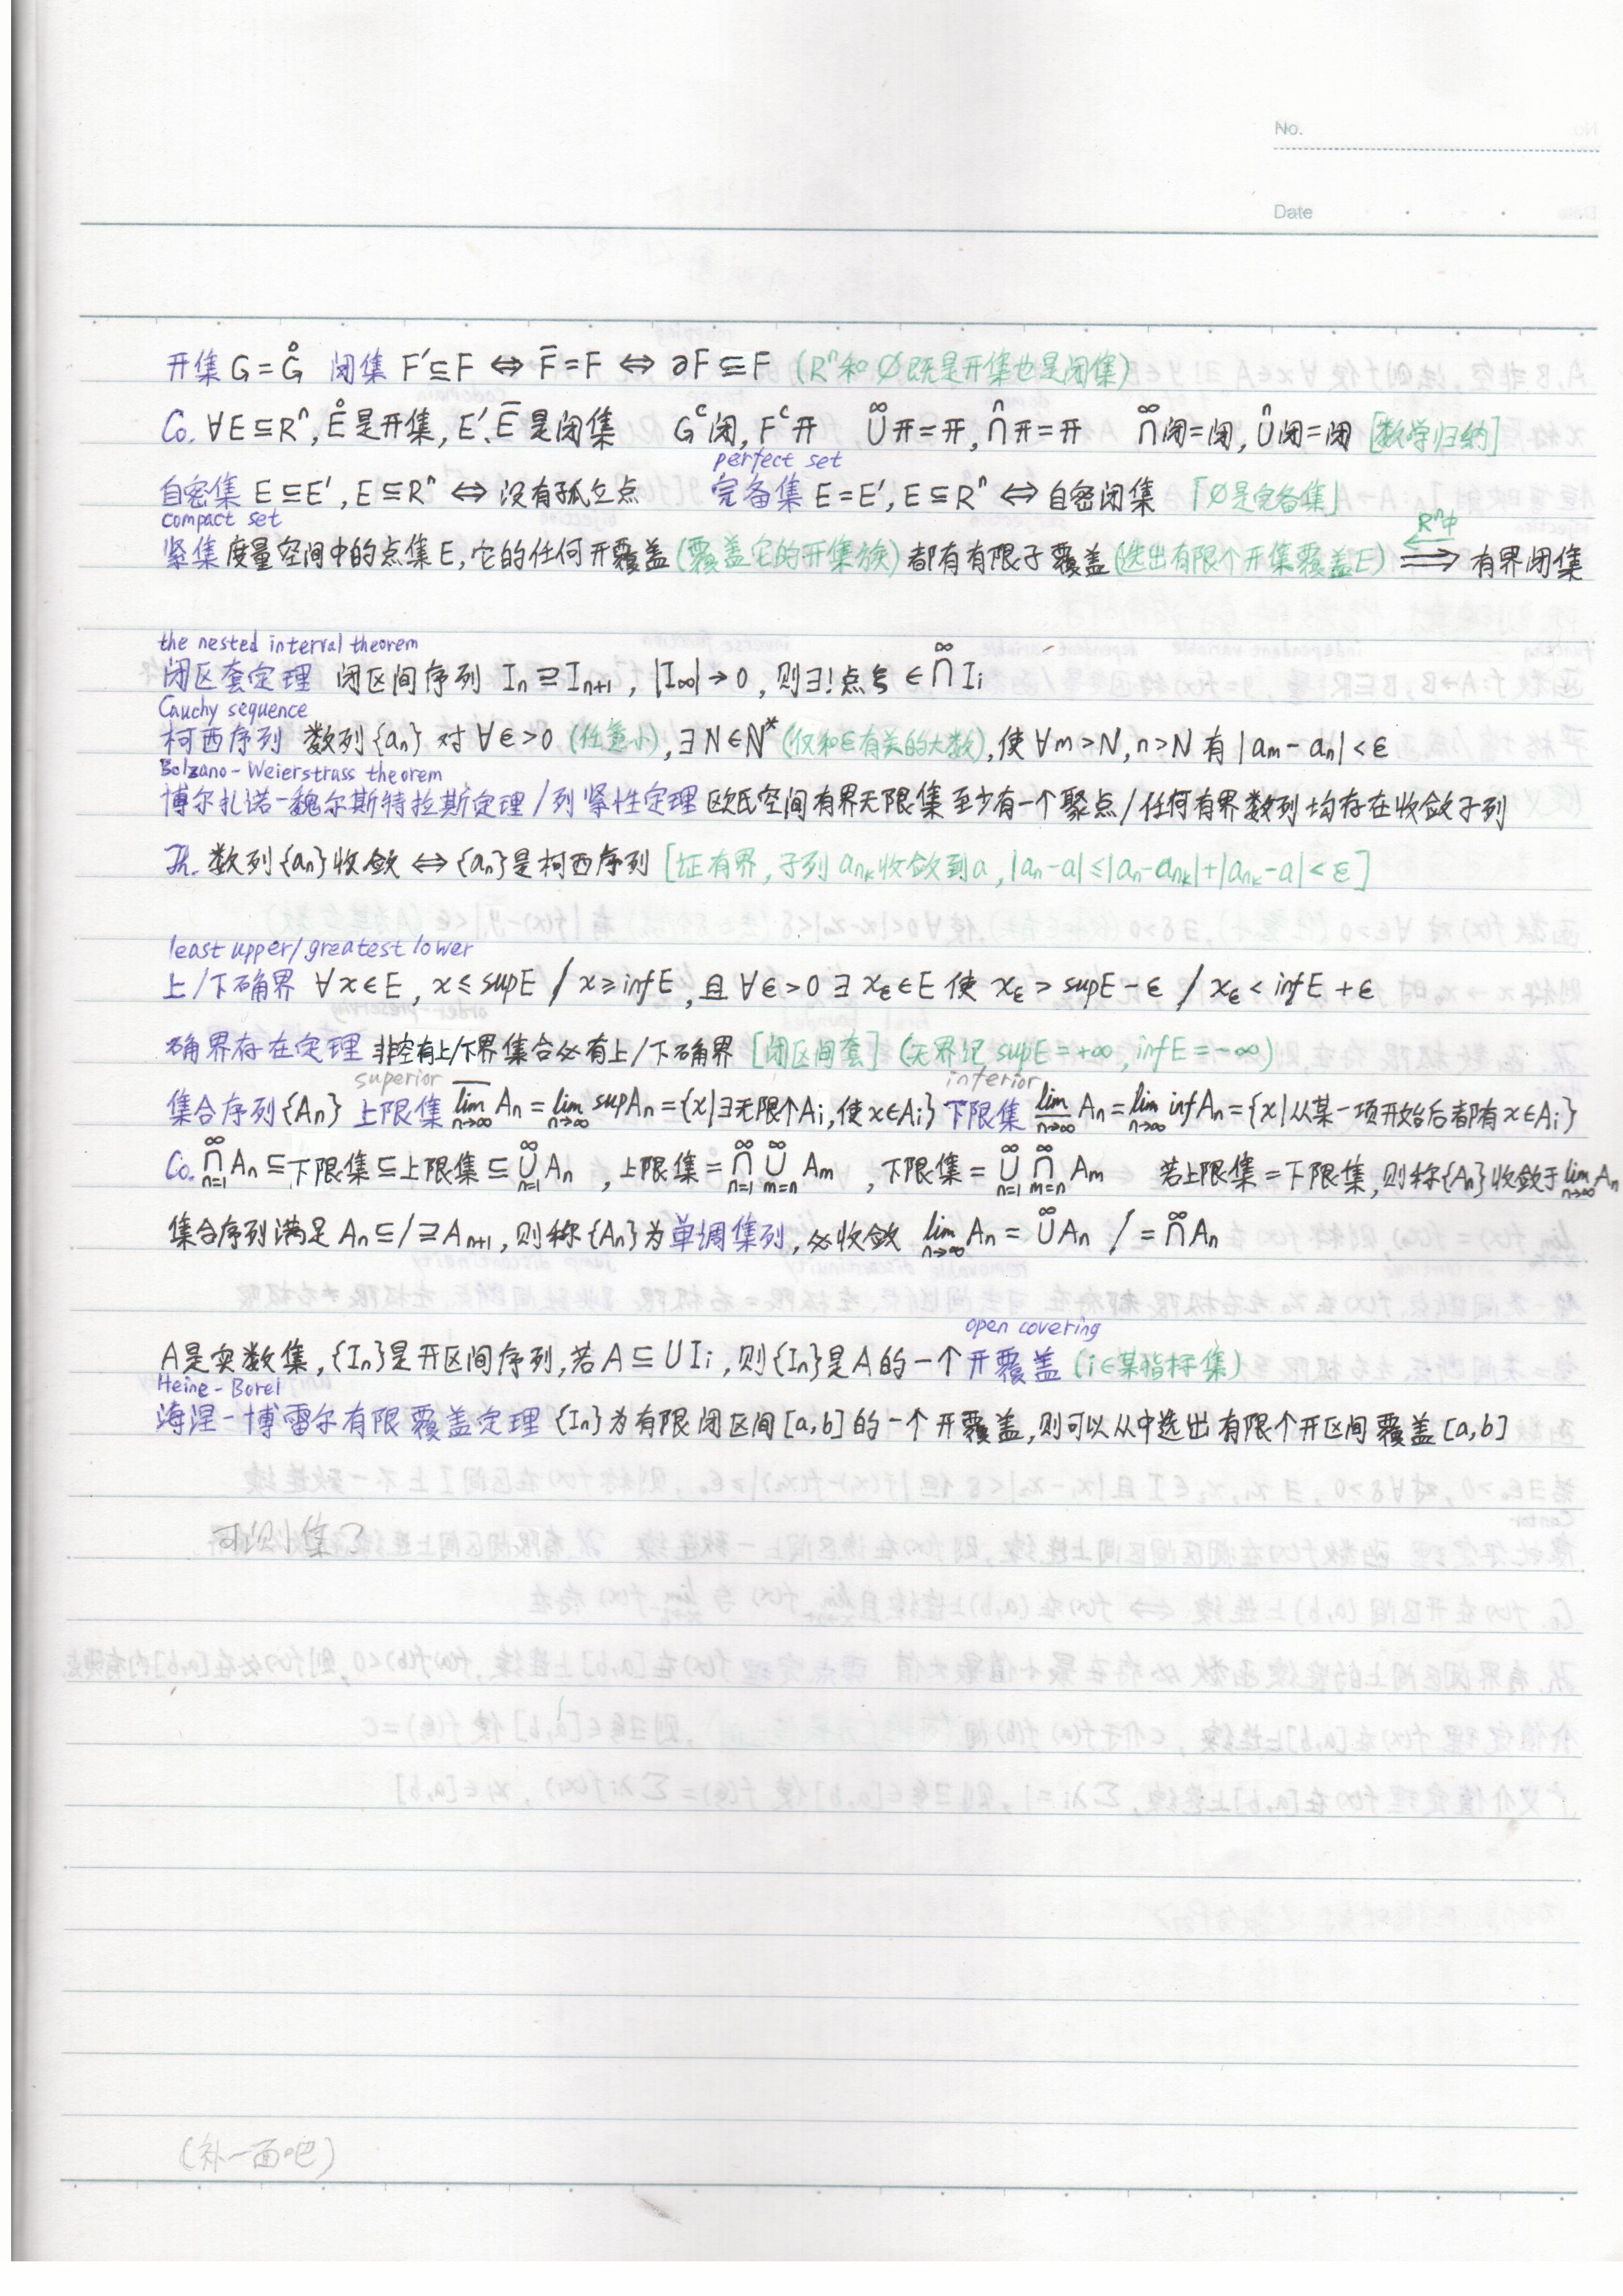 No.
Date
开集 G = G̊ 闭集 F′⊆F ⇔ F̄=F ⇔ ∂F⊆F (Rⁿ和∅既是开集也是闭集)
Co. ∀E⊆Rⁿ, E̊是开集, E′、Ē是闭集 Gᶜ闭, Fᶜ开 ⋃^∞开=开, ⋂^n开=开 ⋂^∞闭=闭, ⋃^n闭=闭 [数学归纳]
perfect set
自密集 E⊆E′, E⊆Rⁿ ⇔ 没有孤立点 完备集 E=E′, E⊆Rⁿ ⇔ 自密闭集 「∅是完备集」
compact set
Rⁿ中 ⟸
紧集 度量空间中的点集E, 它的任何开覆盖(覆盖它的开集族)都有有限子覆盖(选出有限个开集覆盖E) ⟹ 有界闭集
the nested interval theorem
闭区套定理 闭区间序列 Iₙ⊇Iₙ₊₁, |I∞|→0, 则∃!点ξ∈⋂^∞ Iᵢ
Cauchy sequence
柯西序列 数列{aₙ} 对∀ε>0 (任意小), ∃N∈N* (仅和ε有关的大数), 使∀m>N, n>N 有|aₘ-aₙ|<ε
Bolzano-Weierstrass theorem
博尔扎诺-魏尔斯特拉斯定理/列紧性定理 欧氏空间有界无限集至少有一个聚点/任何有界数列均存在收敛子列
Th. 数列{aₙ}收敛 ⇔ {aₙ}是柯西序列 [证有界, 子列a_{n_k}收敛到a, |aₙ-a|≤|aₙ-a_{n_k}|+|a_{n_k}-a|<ε]
least upper/greatest lower
上/下确界 ∀x∈E, x≤supE / x≥infE, 且∀ε>0 ∃x_ε∈E 使 x_ε>supE-ε / x_ε<infE+ε
确界存在定理 非空有上/下界集合必有上/下确界 [闭区间套] (无界记 supE=+∞, infE=-∞)
superior inferior
集合序列{Aₙ} 上限集 \overline{lim}_{n→∞} Aₙ = lim_{n→∞} supAₙ = {x|∃无限个Aᵢ, 使x∈Aᵢ} 下限集 \underline{lim}_{n→∞} Aₙ = lim_{n→∞} infAₙ = {x|从某一项开始后都有x∈Aᵢ}
Co. ⋂_{n=1}^∞ Aₙ⊆下限集⊆上限集⊆⋃_{n=1}^∞ Aₙ, 上限集=⋂_{n=1}^∞ ⋃_{m=n}^∞ Aₘ, 下限集=⋃_{n=1}^∞ ⋂_{m=n}^∞ Aₘ 若上限集=下限集, 则称{Aₙ}收敛于lim_{n→∞} Aₙ
集合序列满足 Aₙ⊆/⊇Aₙ₊₁, 则称{Aₙ}为单调集列, 必收敛 lim_{n→∞} Aₙ = ⋃^∞ Aₙ / = ⋂^∞ Aₙ
open covering
A是实数集, {Iₙ}是开区间序列, 若A⊆∪Iᵢ, 则{Iₙ}是A的一个开覆盖 (i∈某指标集)
Heine-Borel
海涅-博雷尔有限覆盖定理 {Iₙ}为有限闭区间[a,b]的一个开覆盖, 则可以从中选出有限个开区间覆盖[a,b]
(补一面吧)